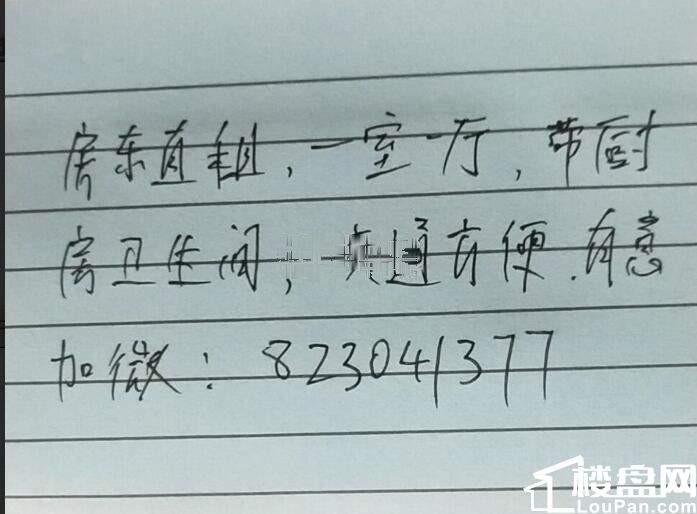 房东直租，一室一厅，带厨
房卫生间，交通方便.有意
加微：823041377
楼盘网
LouPan.com